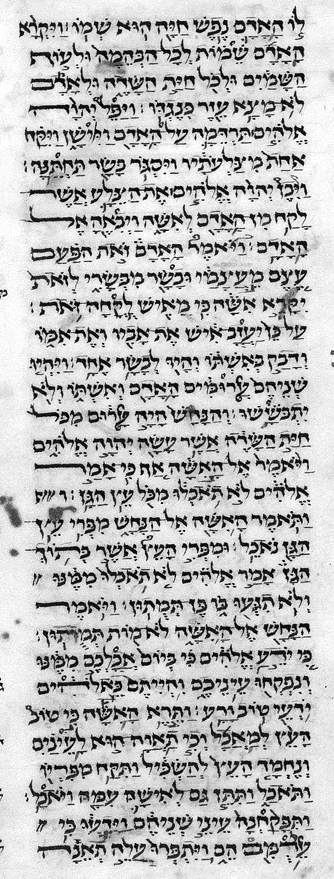 לו האדם נפש חיה הוא שמו ויקרא
האדם שמות לכל הבהמה ולעוף
השמים ולכל חית השדה ולאדם
לא מצא עזר כנגדו ויפל יהוה
אלהים תרדמה על האדם ויישן ויקח
אחת מצלעתיו ויסגר בשר תחתנה
ויבן יהוה אלהים את הצלע אשר
לקח מן האדם לאשה ויבאה אל
האדם ויאמר האדם זאת הפעם
עצם מעצמי ובשר מבשרי לזאת
יקרא אשה כי מאיש לקחה זאת
על כן יעזב איש את אביו ואת אמו
ודבק באשתו והיו לבשר אחד ויהיו
שניהם ערומים האדם ואשתו ולא
יתבששו והנחש היה ערום מכל
חית השדה אשר עשה יהוה אלהים
ויאמר אל האשה אף כי אמר
אלהים לא תאכלו מכל עץ הגן
ותאמר האשה אל הנחש מפרי עץ
הגן נאכל ומפרי העץ אשר בתוך
הגן אמר אלהים לא תאכלו ממנו
ולא תגעו בו פן תמתון ויאמר
הנחש אל האשה לא מות תמתון
כי ידע אלהים כי ביום אכלכם ממנו
ונפקחו עיניכם והייתם כאלהים
ידעי טוב ורע ותרא האשה כי טוב
העץ למאכל וכי תאוה הוא לעינים
ונחמד העץ להשכיל ותקח מפריו
ותאכל ותתן גם לאישה עמה ויאכל
ותפקחנה עיני שניהם וידעו כי
עירמים הם ויתפרו עלה תאנה